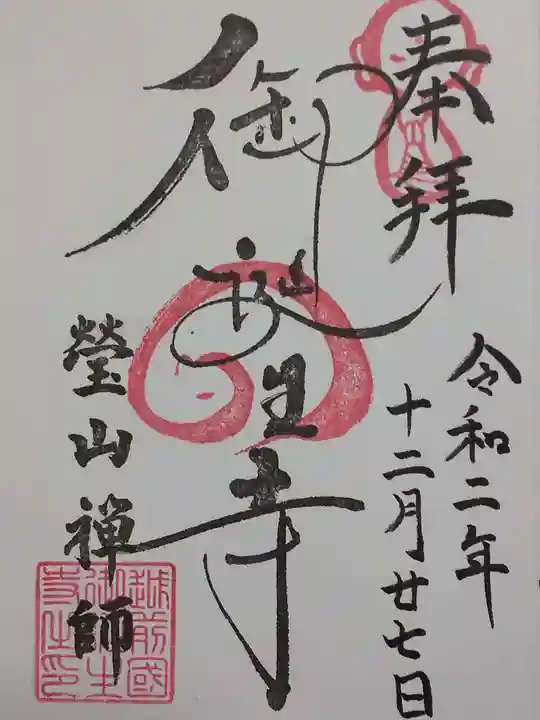 奉拝
令和二年
十二月廿七日
御誕生寺
瑩山禪師
越前國
御誕生